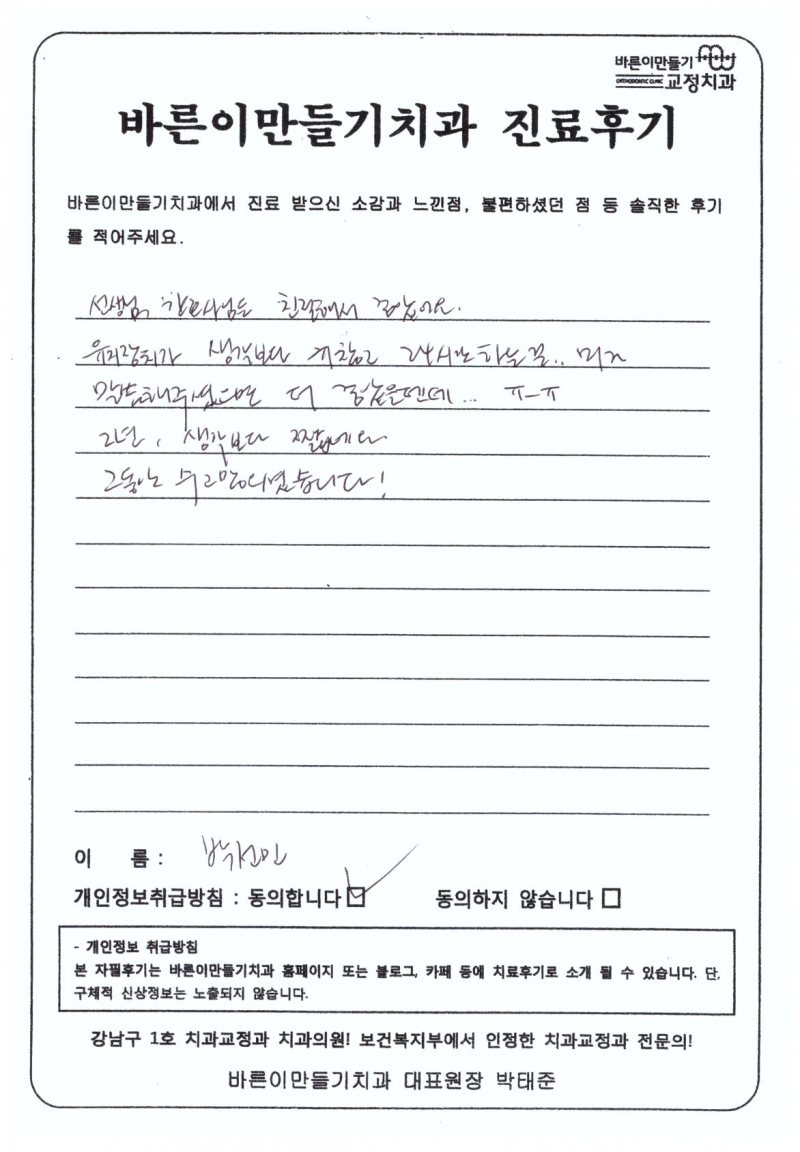 바른이만들기
ORTHODONTIC CLINIC 교정치과
바른이만들기치과 진료후기
바른이만들기치과에서 진료 받으신 소감과 느낀점, 불편하셨던 점 등 솔직한 후기
를 적어주세요.
선생님, 간호사님들 친절해서 좋았어요.
유지장치가 생각보다 귀찮고 24시간 하는걸.. 미리
말씀해주셨으면 더 좋았을텐데... ㅠ-ㅠ
2년, 생각보다 짧네요
그동안 수고많으셨습니다!
이 름 :
개인정보취급방침 : 동의합니다 동의하지 않습니다
- 개인정보 취급방침
본 자필후기는 바른이만들기치과 홈페이지 또는 블로그, 카페 등에 치료후기로 소개 될 수 있습니다. 단,
구체적 신상정보는 노출되지 않습니다.
강남구 1호 치과교정과 치과의원! 보건복지부에서 인정한 치과교정과 전문의!
바른이만들기치과 대표원장 박태준